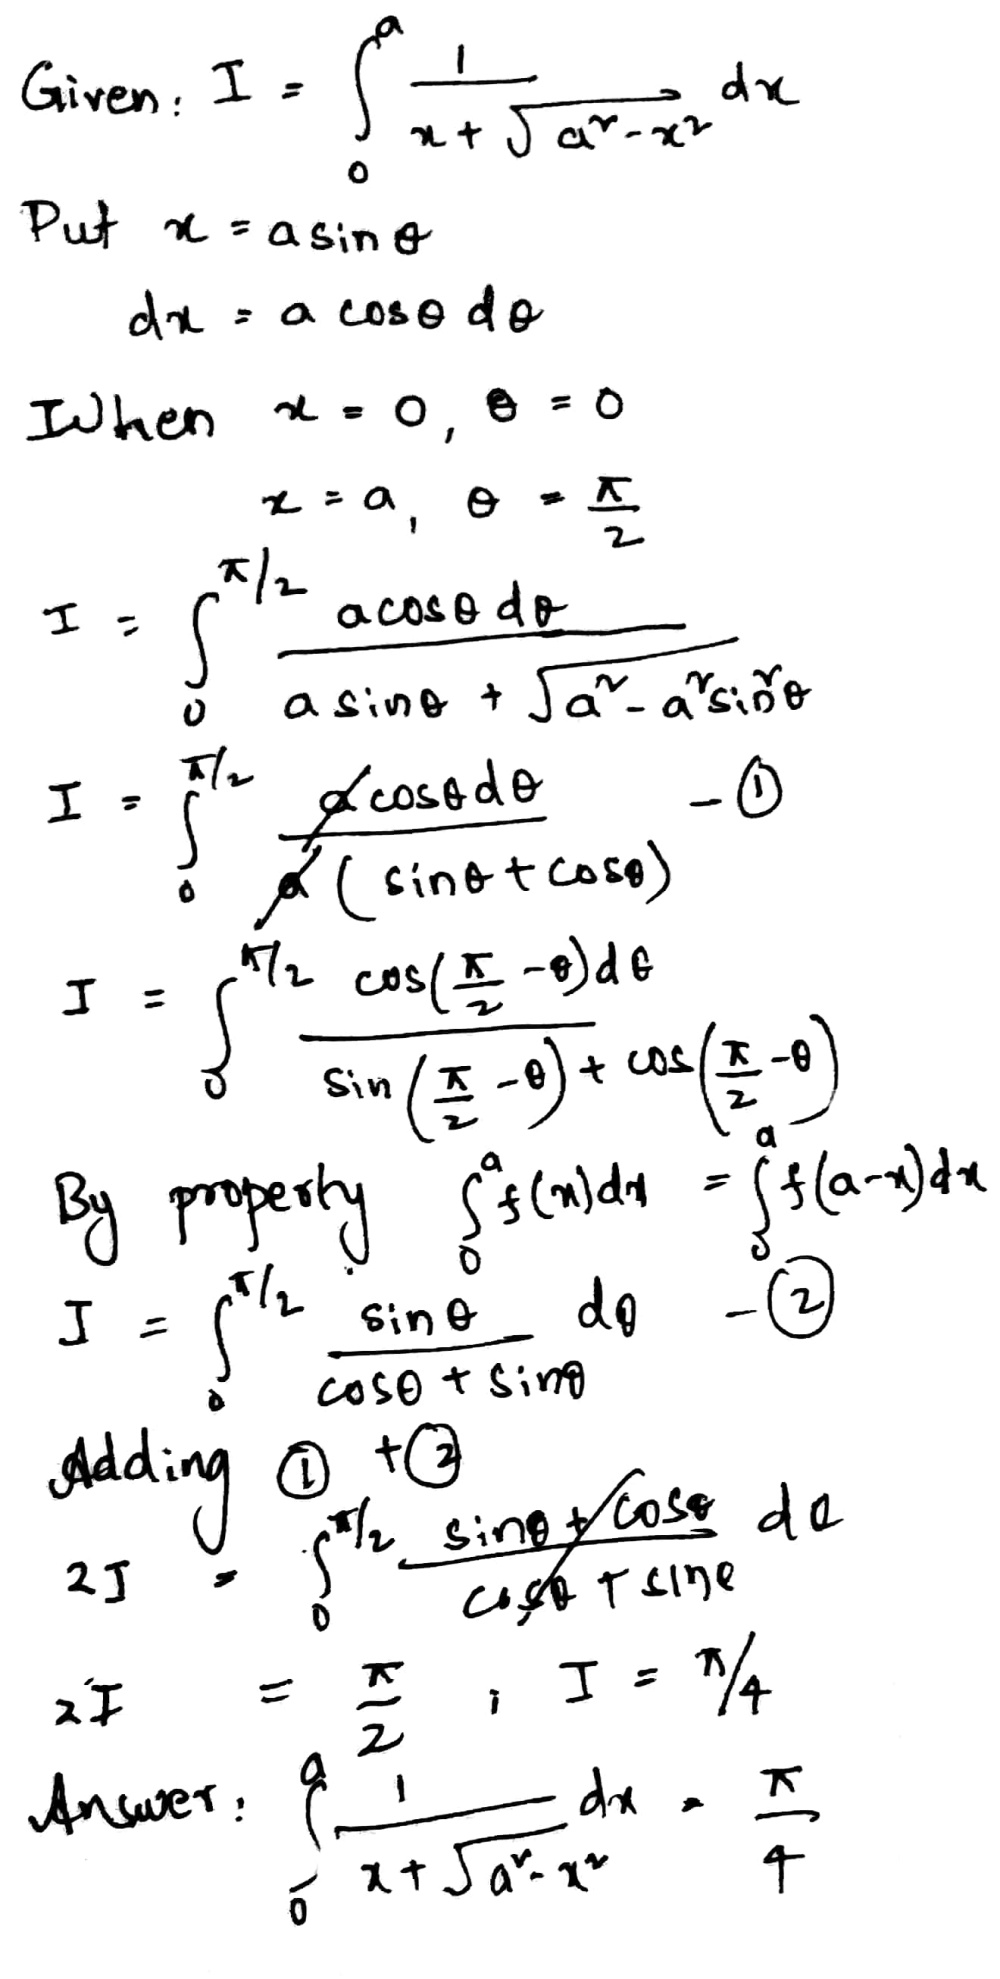 Given: I = ∫₀ᵃ 1/(x + √(a² - x²)) dx
Put x = a sin θ
dx = a cos θ dθ
When x = 0, θ = 0
x = a, θ = π/2
I = ∫₀^(π/2) a cos θ dθ / (a sin θ + √(a² - a² sin² θ))
I = ∫₀^(π/2) a cos θ dθ / (a (sin θ + cos θ)) - ①
I = ∫₀^(π/2) cos(π/2 - θ) dθ / (sin(π/2 - θ) + cos(π/2 - θ))
By property ∫₀ᵃ f(x) dx = ∫₀ᵃ f(a-x) dx
I = ∫₀^(π/2) sin θ / (cos θ + sin θ) dθ - ②
Adding ① + ②
2I = ∫₀^(π/2) (sin θ + cos θ) / (cos θ + sin θ) dθ
2I = π/2 ; I = π/4
Answer: ∫₀ᵃ 1/(x + √(a² - x²)) dx = π/4